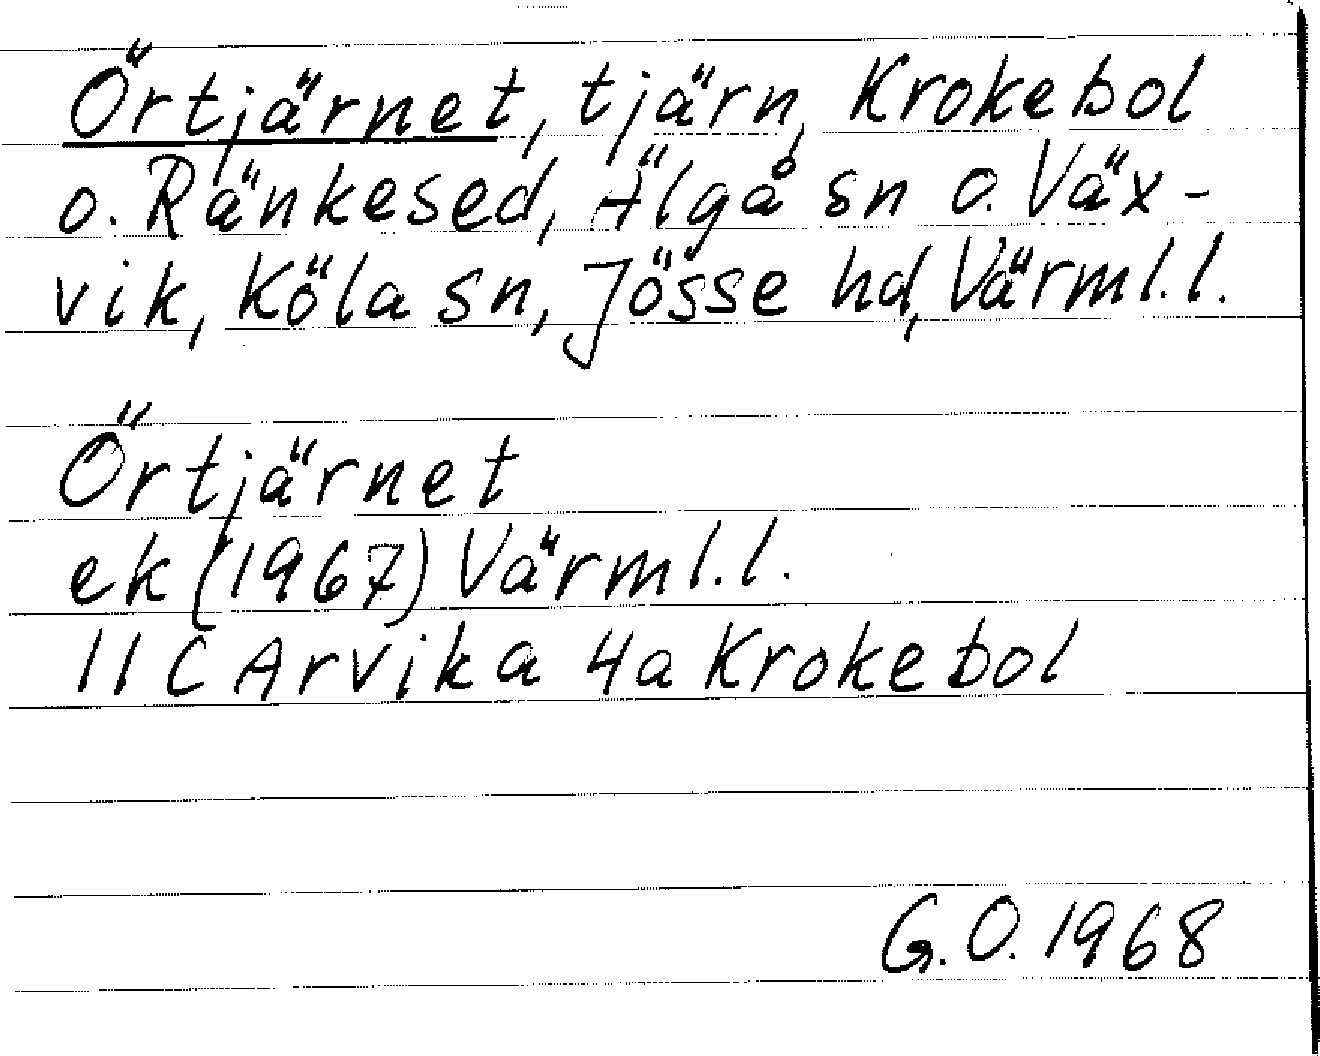 Örtjärnet, tjärn, Krokebol
o. Ränkesed, Älgå sn o. Väx-
vik, Köla sn, Jösse hd, Värml.l.
Örtjärnet
ek (1967) Värml.l.
11C Arvika 4a Krokebol
G.O. 1968